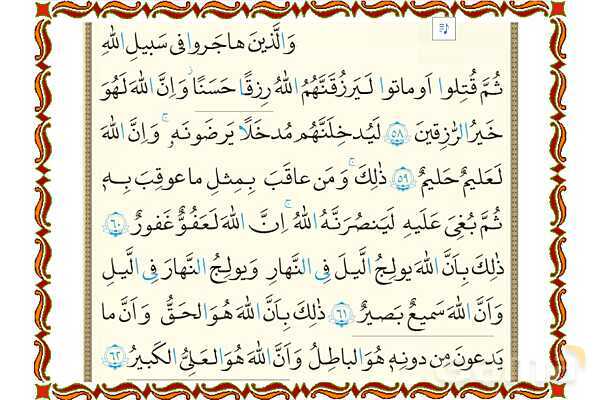 وَالَّذينَ هاجَروا فى سَبيلِ اللهِ
ثُمَّ قُتِلوا اَو ماتوا لَيَرزُقَنَّهُمُ اللهُ رِزقًا حَسَنًا ۚ وَاِنَّ اللهَ لَهُوَ
خَيرُ الرّٰزِقينَ ﴿٥٨﴾ لَيُدخِلَنَّهُم مُدخَلًا يَرضَونَهٗ ۚ وَاِنَّ اللهَ
لَعَليمٌ حَليمٌ ﴿٥٩﴾ ذٰلِكَ ۚ وَمَن عاقَبَ بِمِثلِ ما عوقِبَ بِهٖ
ثُمَّ بُغِىَ عَلَيهِ لَيَنصُرَنَّهُ اللهُ ۚ اِنَّ اللهَ لَعَفُوٌّ غَفورٌ ﴿٦٠﴾
ذٰلِكَ بِاَنَّ اللهَ يولِجُ الَّيلَ فِى النَّهارِ وَيولِجُ النَّهارَ فِى الَّيلِ
وَاَنَّ اللهَ سَميعٌ بَصيرٌ ﴿٦١﴾ ذٰلِكَ بِاَنَّ اللهَ هُوَ الحَقُّ وَاَنَّ ما
يَدعونَ مِن دونِهٖ هُوَ الباطِلُ وَاَنَّ اللهَ هُوَ العَلِىُّ الكَبيرُ ﴿٦٢﴾